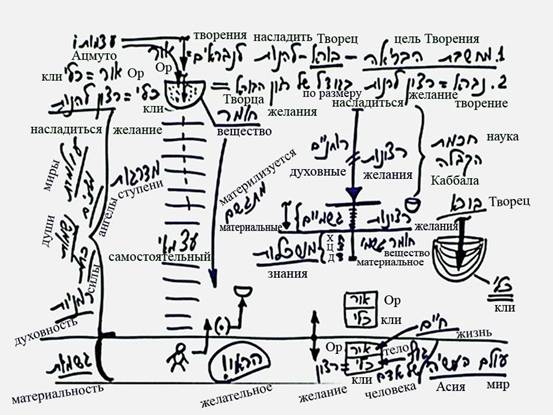 עצמותו творения насладить Творец цель Творения
Ацмуто אור 1. מחשבת הבריאה - בורא - להנות לנבראים
кли Ор Ор по размеру желание
כלי = אור Творца насладиться творение
כלי = רצון להנות кли желания 2. נברא = רצון להנות בגודל של רצון הבורא
חומר
насладиться желание вещество
наука
חכמת
הקבלה
Каббала
רוחניים רצונות
духовные желания
миры עולמות
ангелы מלאכים
ступени מדרגות
души נשמות
силы כוחות
материлизуется
מתגשם
בורא Творец
материальные גשמיים רצונות желания
самостоятельный עצמאי
Х
Ц
Д
חומר גשמי
вещество
материальное
знания
כלי
кли
духовность רוחניות
אור Ор
כלי кли
חיים жизнь
Ор אור тело גוף
רצון כלי של אדם
желание кли человека
עולם העשיה
Асия мир
הראוי!
желательное
материальность גשמיות